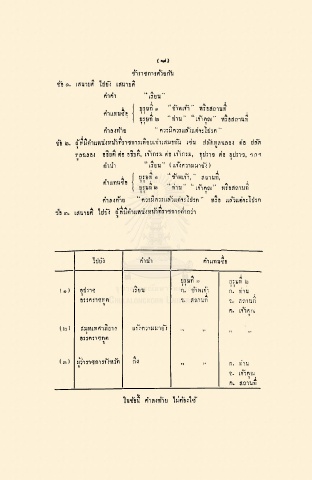 ( ๗ )
ข้าราชการด้วยกัน
ข้อ ๑. เสนาบดี ใช้ยัง เสนาบดี
คำนำ "เรียน"
คำแทนชื่อ
บุรุษที่ ๑ "ข้าพเจ้า" หรือสถานที่
บุรุษที่ ๒ "ท่าน" "เจ้าคุณ" หรือสถานที่
คำลงท้าย "ควรมิควรแล้วแต่จะโปรด"
ข้อ ๒. ผู้ที่มีตำแหน่งหน้าที่ราชการเทียบเท่าเสมอกัน เช่น ปลัดทูลฉลอง ต่อ ปลัด
ทูลฉลอง อธิบดี ต่อ อธิบดี, เจ้ากรม ต่อ เจ้ากรม, อุปราช ต่อ อุปราช, ฯลฯ
คำนำ "เรียน" (แจ้งความมายัง)
คำแทนชื่อ
บุรุษที่ ๑ "ข้าพเจ้า," สถานที่,
บุรุษที่ ๒ "ท่าน" "เจ้าคุณ" หรือสถานที่
คำลงท้าย "ควรมิควรแล้วแต่จะโปรด" หรือ แล้วแต่จะโปรด
ข้อ ๓. เสนาบดี ใช้ยัง ผู้ที่มีตำแหน่งหน้าที่ราชการต่ำกว่า
ใช้ยัง คำนำ คำแทนชื่อ
บุรุษที่ ๑ บุรุษที่ ๒
(๑) อุปราช เรียน ก. ข้าพเจ้า ก. ท่าน
อรรคราชทูต ข. สถานที่ ข. สถานที่
ค. เจ้าคุณ
(๒) สมุหเทศาภิบาล แจ้งความมายัง " " " "
อรรคราชทูต
(๓) ผู้ว่าราชการจังหวัด ถึง " " ก. ท่าน
ข. เจ้าคุณ
ค. สถานที่
ในข้อนี้ คำลงท้าย ไม่ต้องใช้